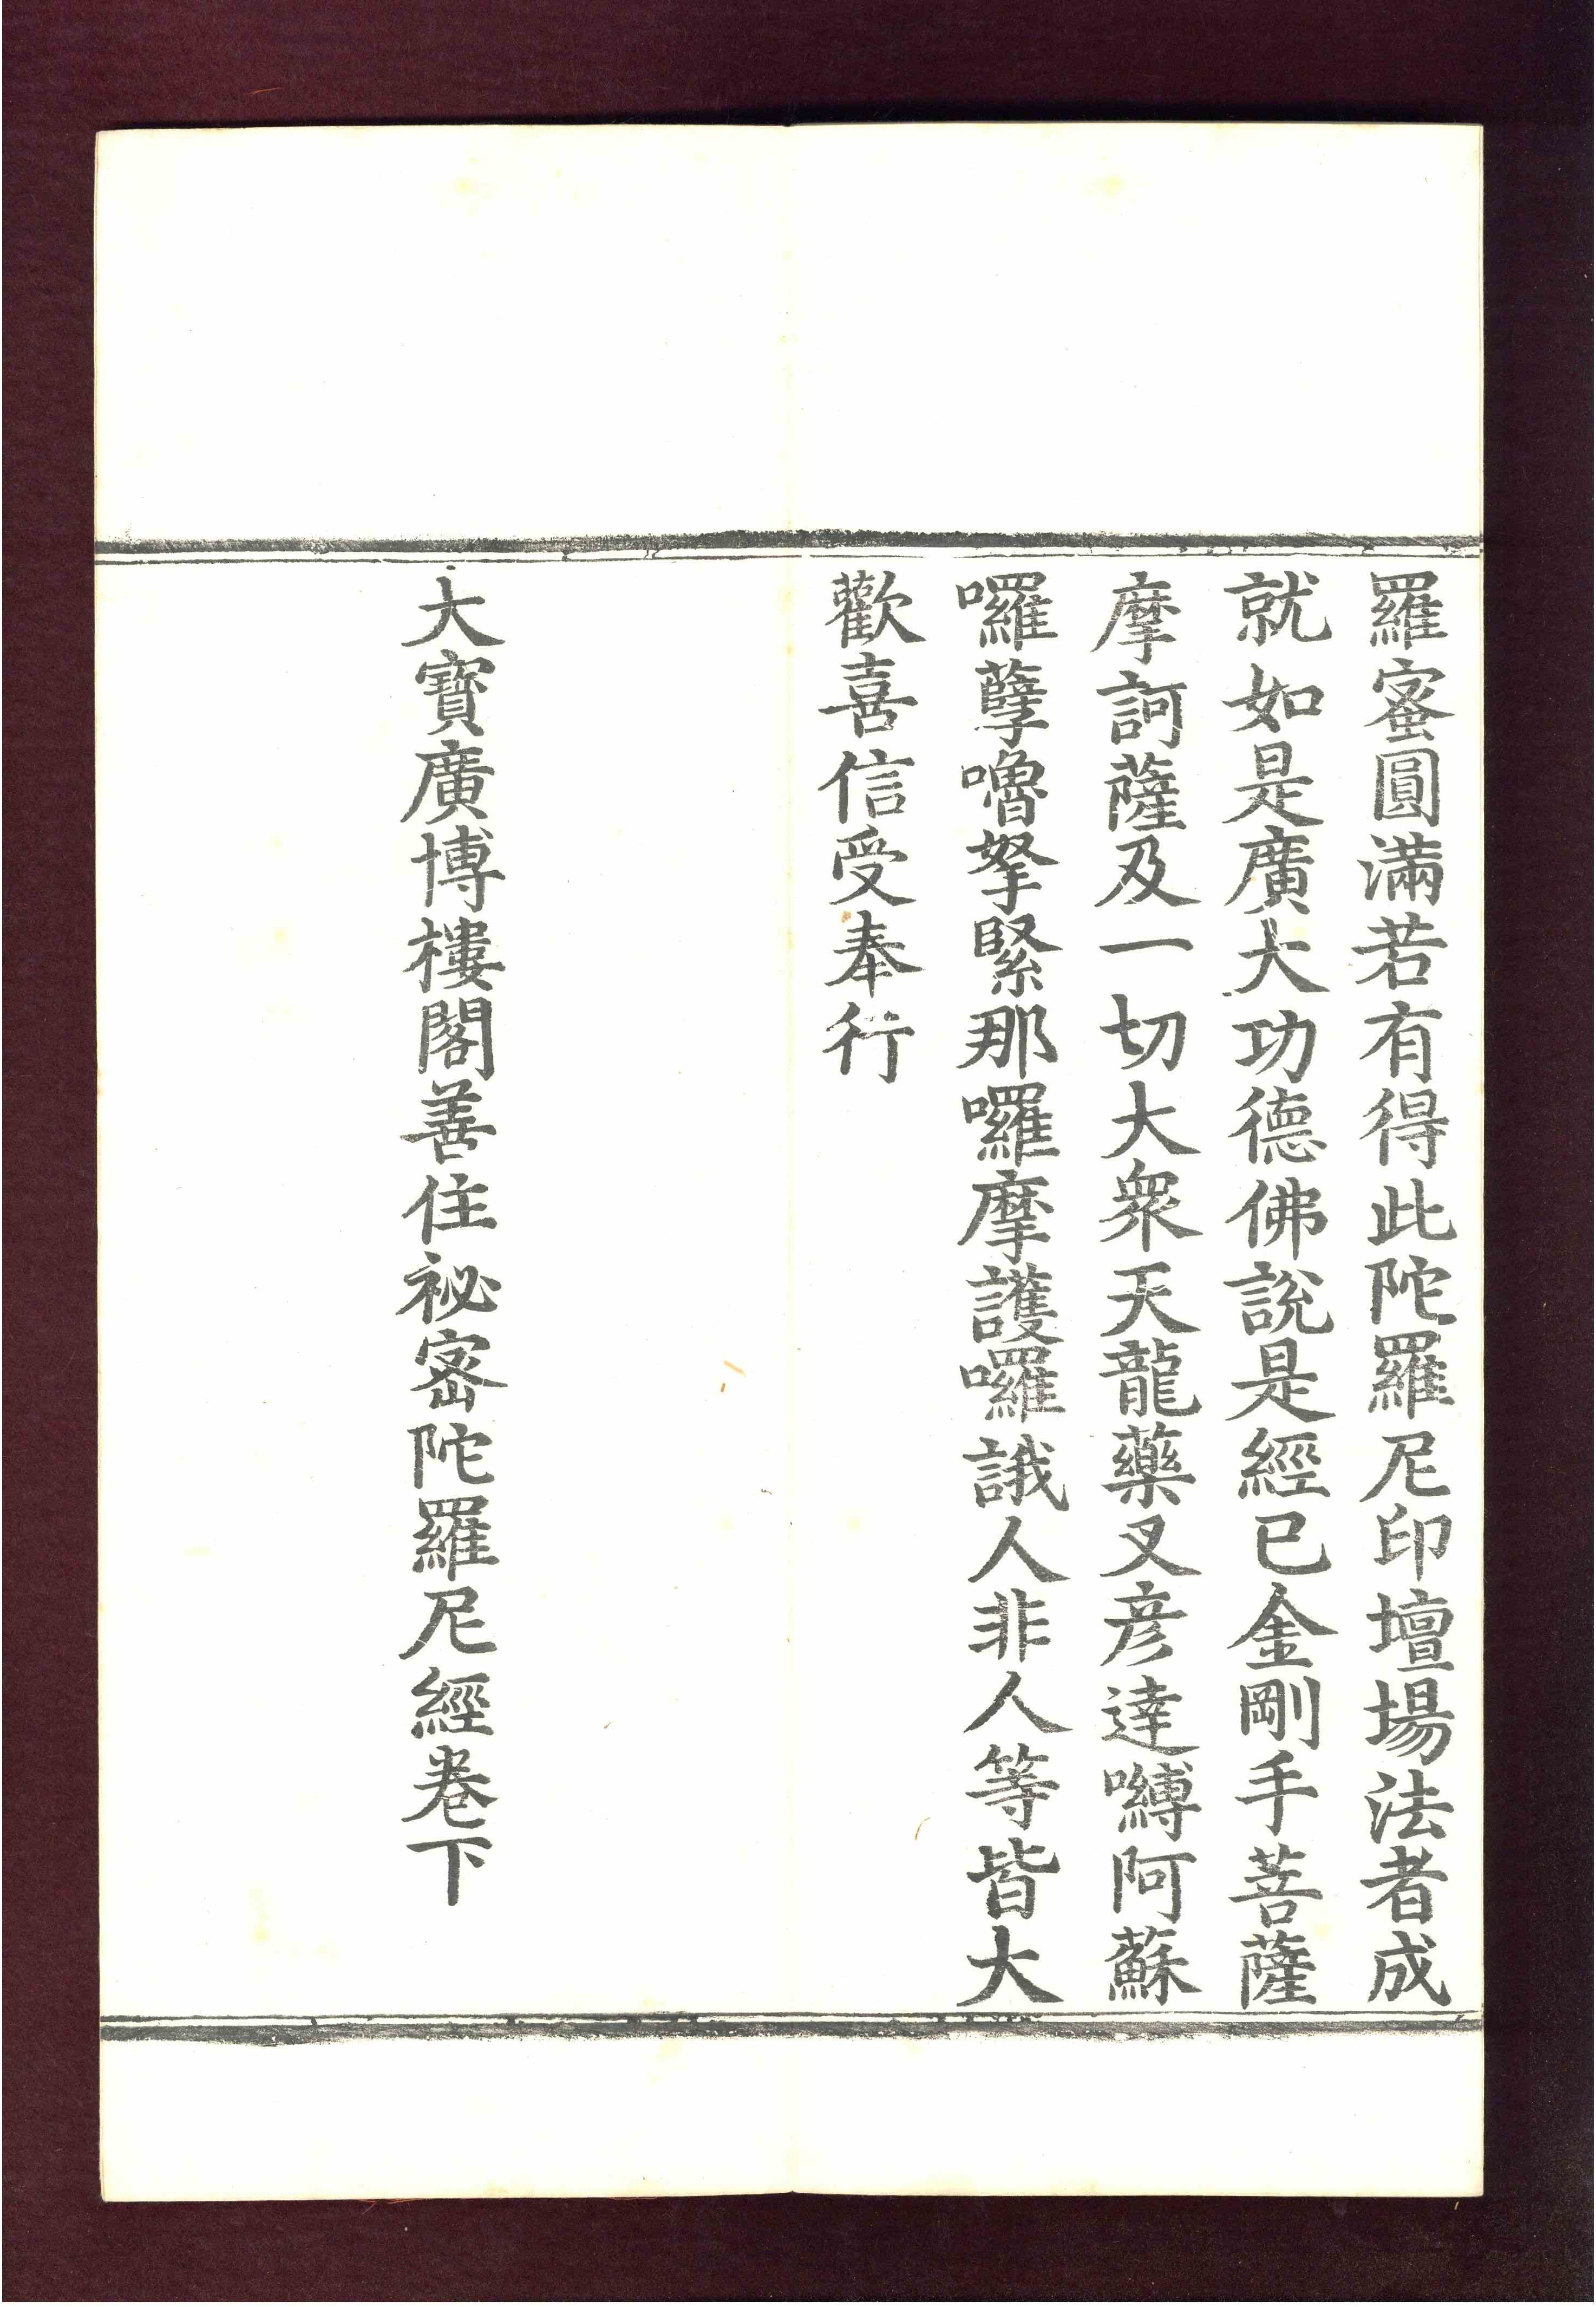 羅蜜圓滿若有得此陀羅尼印壇場法者成
就如是廣大功德佛說是經已金剛手菩薩
摩訶薩及一切大眾天龍藥叉彥達嚩阿蘇
囉孽嚕拏緊那囉摩護囉誐人非人等皆大
歡喜信受奉行
大寶廣博樓閣善住祕密陀羅尼經卷下